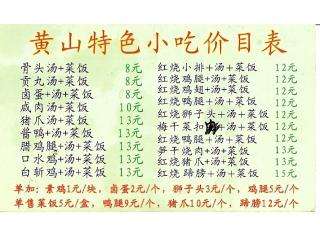 黄山特色小吃价目表
骨头汤+菜饭 8元
贡丸+汤+菜饭 8元
卤蛋+汤+菜饭 8元
咸肉+汤+菜饭 10元
猪爪+汤+菜饭 13元
酱鸭+汤+菜饭 13元
腊鸡腿+汤+菜饭 13元
口水鸡+汤+菜饭 13元
白斩鸡+汤+菜饭 13元
红烧小排+汤+菜饭 12元
红烧鸡腿+汤+菜饭 12元
红烧鸡翅+汤+菜饭 12元
红烧鸭腿+汤+菜饭 12元
红烧狮子头+汤+菜饭 12元
梅干菜扣+汤+菜饭 12元
笋干烧肉+汤+菜饭 12元
红烧猪爪+汤+菜饭 13元
红烧蹄膀+汤+菜饭 15元
单加：素鸡1元/块，卤蛋2元/个，狮子头3元/个，鸡腿5元/个
单售菜饭5元/盒，鸭腿9元/个，猪爪10元/个，蹄膀12元/个